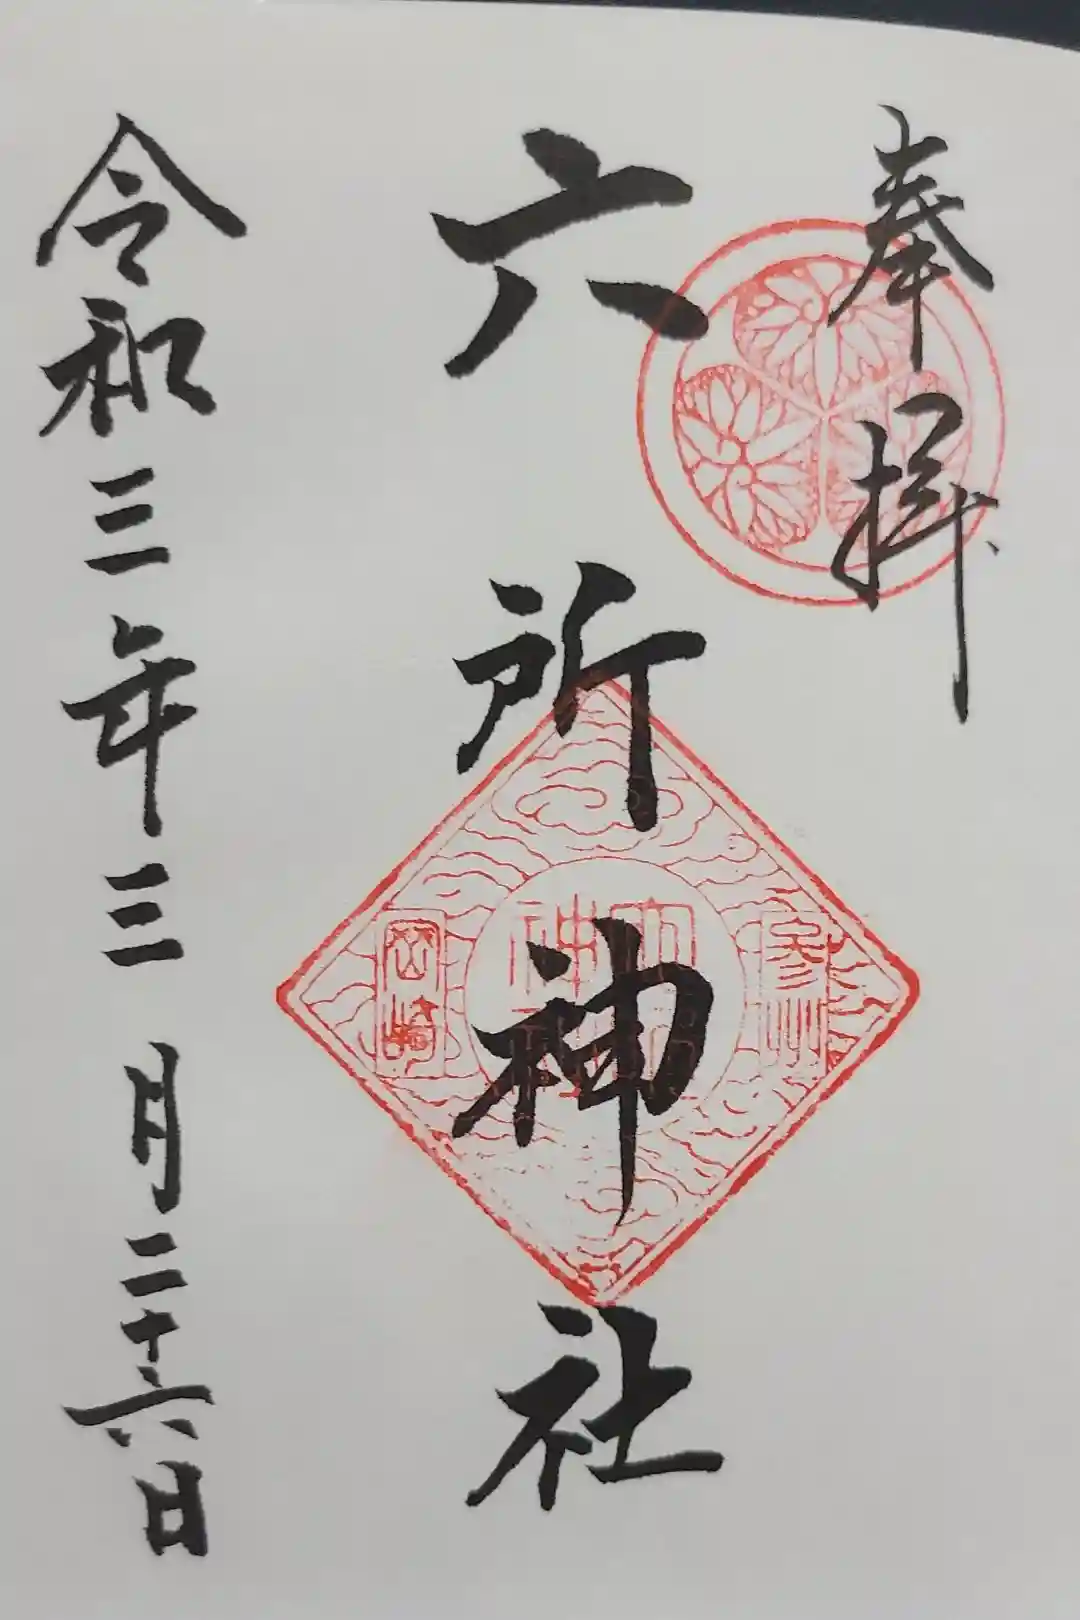 奉拝
六所神社
参州
六所神社
岡崎
令和三年三月二十六日